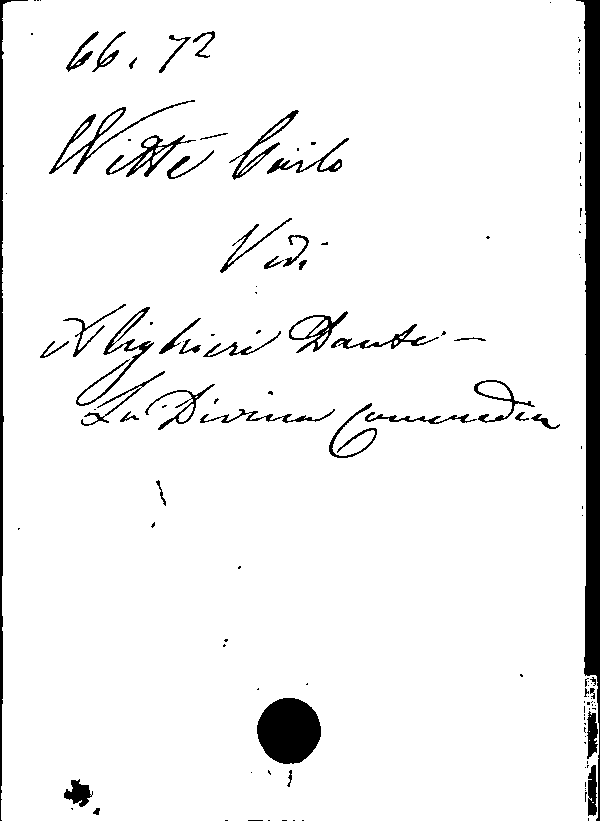 66. 72
Witte Carlo
Vidi
Alighieri Dante –
La Divina Commedia